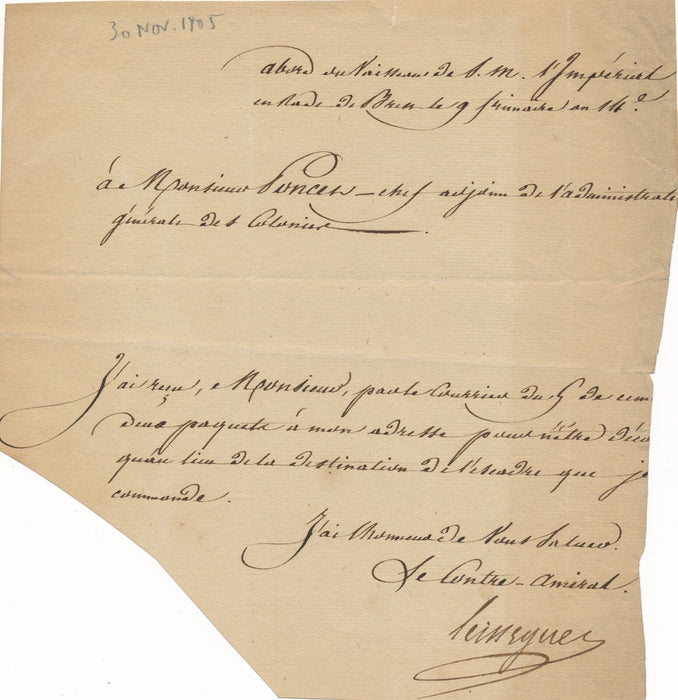 30 NOV. 1805
abord du Vaisseau de S. M. l'Impérial
en Rade de Brest le 9 frimaire an 14.e
à Monsieur Poncet - chef adjoint de l'administrat
générale des Colonies
J'ai reçu, Monsieur, par le Courrier du 5 de ce m
deux paquets à mon adresse pour n'être déca
qu'au lieu de la destination de l'escadre que je
commande.
J'ai l'honneur de Vous Saluer.
Le Contre-amiral.
Leissegues